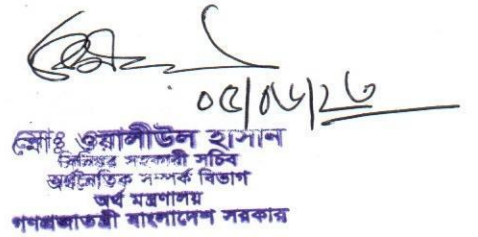 ০৫/০৬/২৩
মোঃ ওয়ালীউল হাসান
সিনিয়র সহকারী সচিব
অর্থনৈতিক সম্পর্ক বিভাগ
অর্থ মন্ত্রণালয়
গণপ্রজাতন্ত্রী বাংলাদেশ সরকার